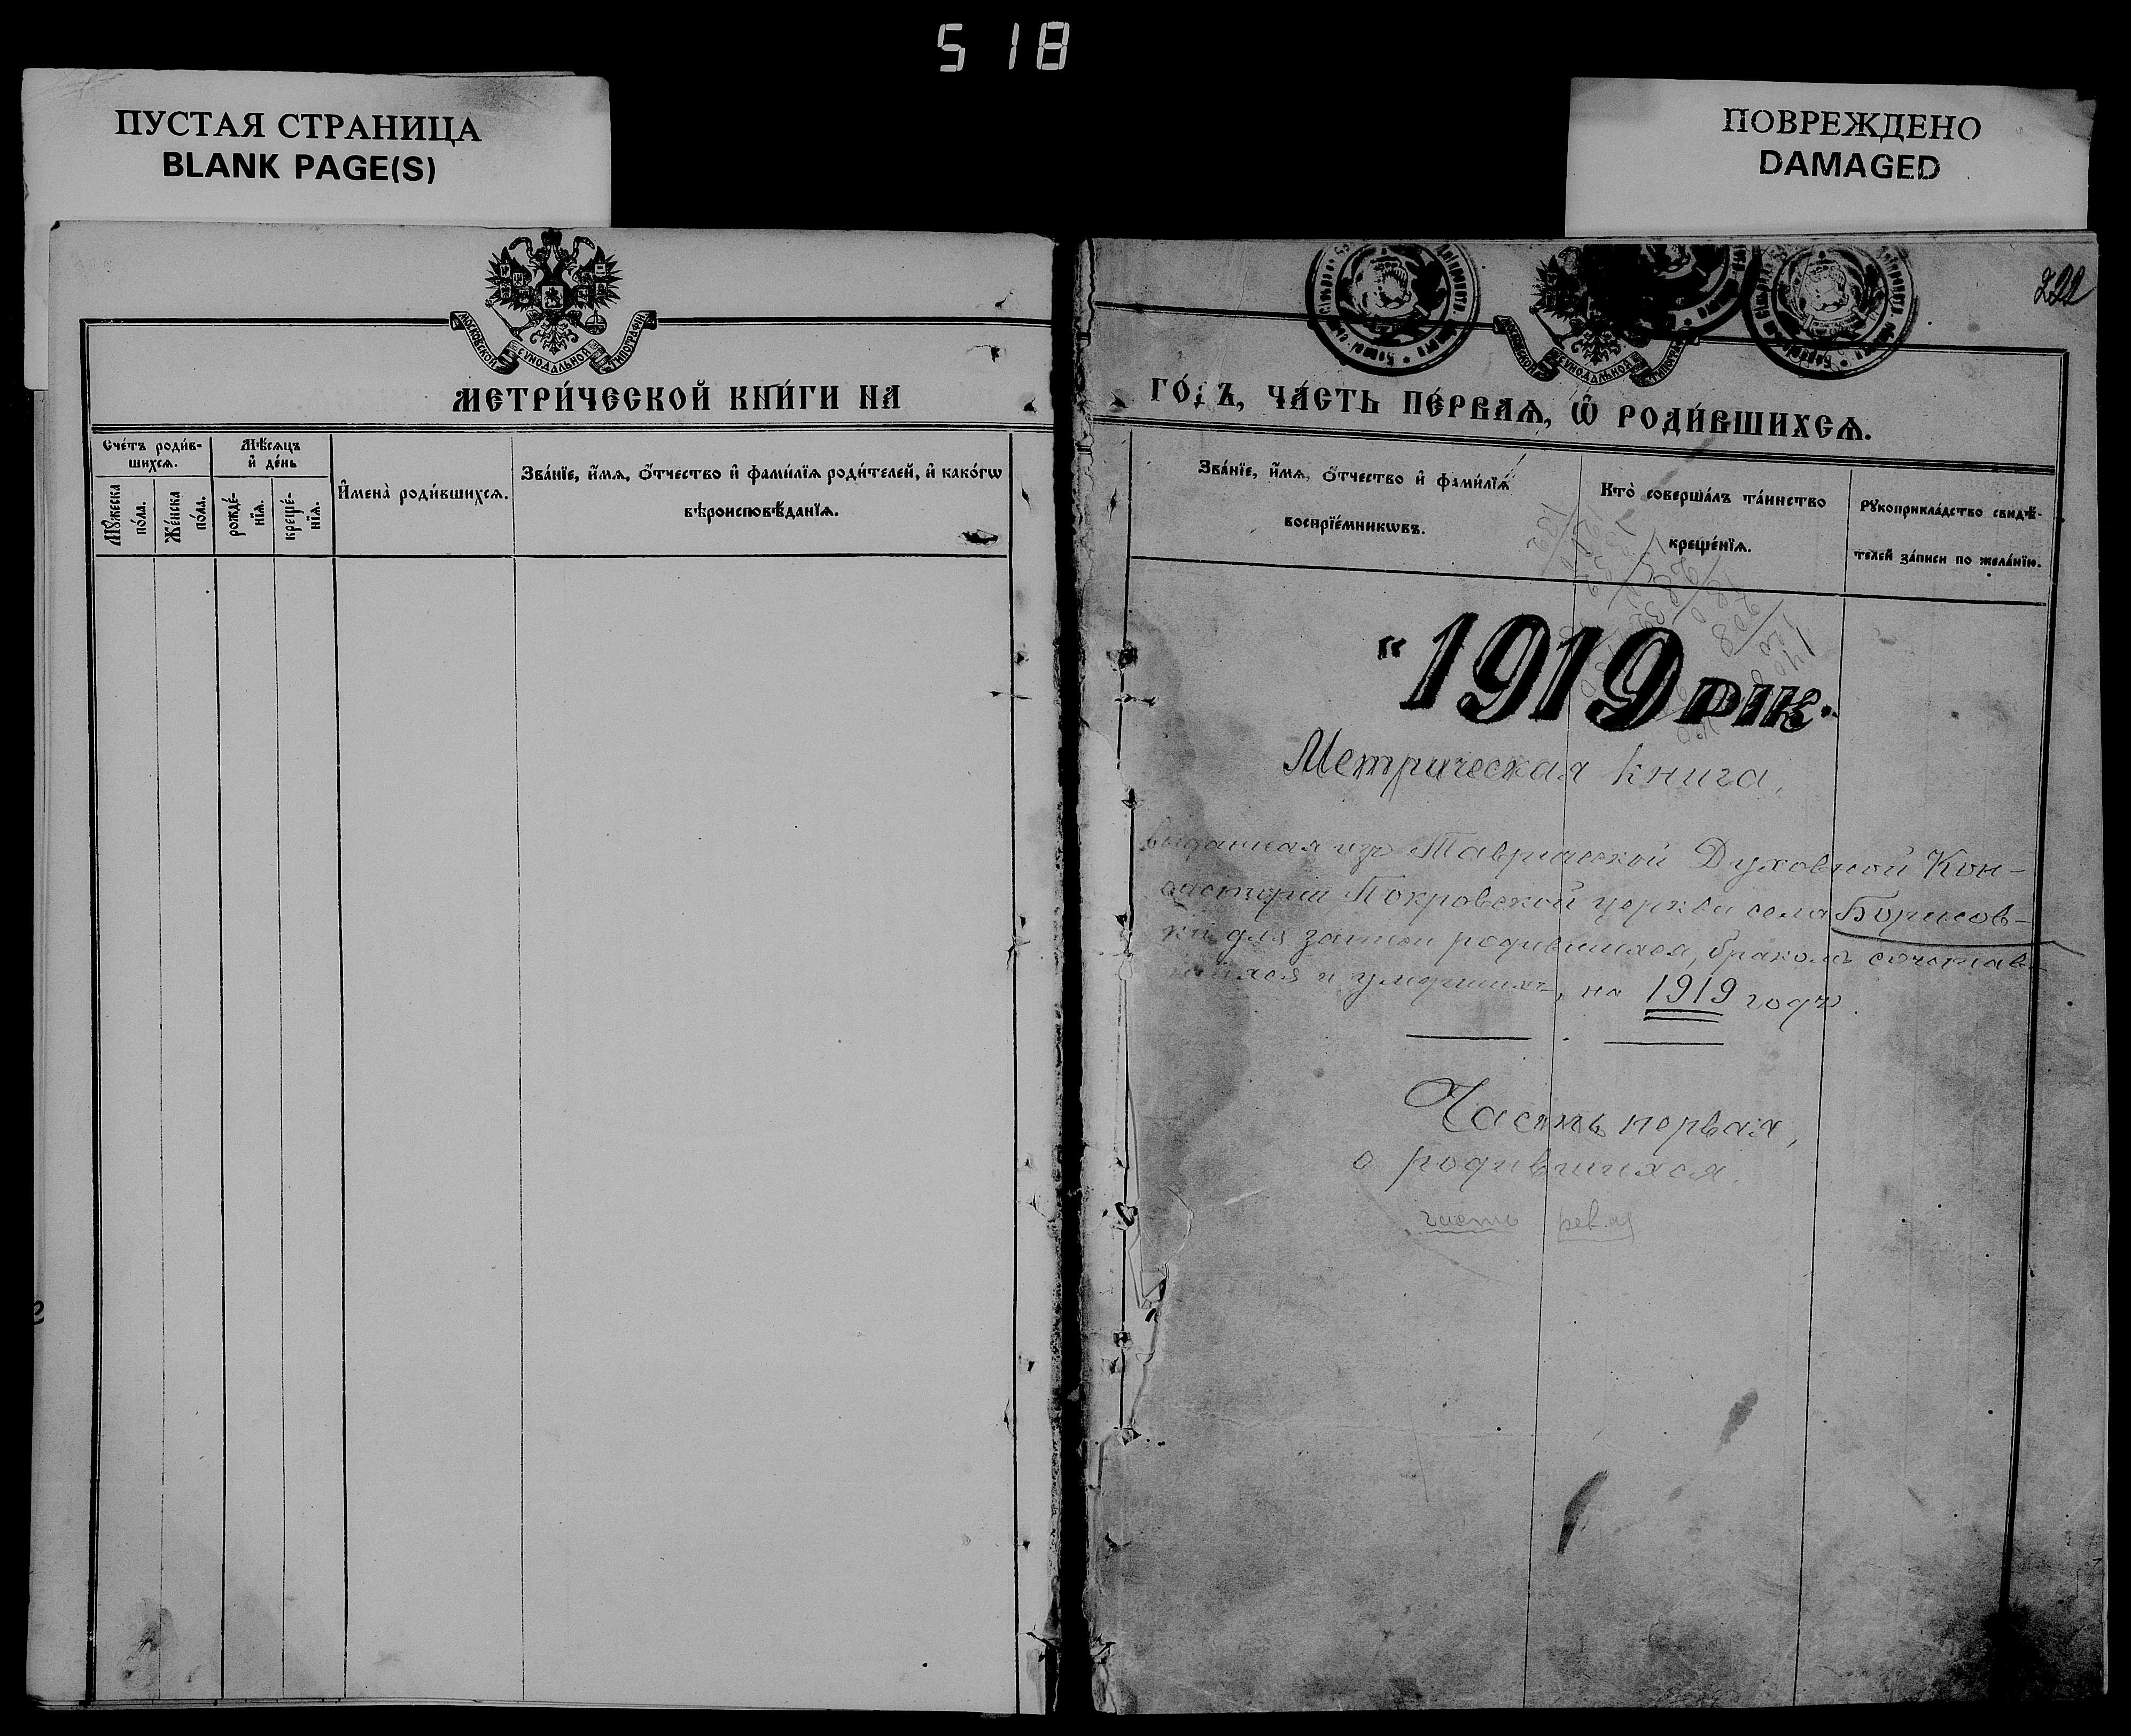 518
ПУСТАЯ СТРАНИЦА
BLANK PAGE(S)
ПОВРЕЖДЕНО
DAMAGED
МОСКОВСКОЙ СѴНОДАЛЬНОЙ ТИПОГРАФІИ
МЕТРИ́ЧЕСКОЙ КНИ́ГИ НА
Сче́тъ роди́в-
шихсѧ.
Мѣ́сѧцъ
и҆ де́нь
Мꙋ́жеска
по́ла.
Же́нска
по́ла.
рожде́-
нїѧ.
креще́-
нїѧ.
И҆мена̀ роди́вшихсѧ.
Зва́нїе, и҆́мѧ, ѻ҆́тчество и҆ фами́лїѧ роди́телей, и҆ како́гѡ
вѣроисповѣ́данїѧ.
МОСКОВСКОЙ СѴНОДАЛЬНОЙ ТИПОГРАФІИ
ГО́ДЪ, ЧА́СТЬ ПЕ́РВАѦ, Ѡ҆ РОДИ́ВШИХСѦ.
Зва́нїе, и҆́мѧ, ѻ҆́тчество и҆ фами́лїѧ
воспрїе́мникѡвъ.
Кто̀ соверша́лъ та́инство
креще́нїѧ.
Рꙋкоприкла́дство свидѣ́-
телей за́писи по жела́нїю.
"1919 РІК.
Метрическая книга,
выданная изъ Таврической Духовной Кон-
систоріи Покровской церкви села Борисов-
ки для записи родившихся, бракомъ сочетав-
шихся и умершихъ, на 1919 годъ.
Часть первая,
о родившихся.
часть рвая